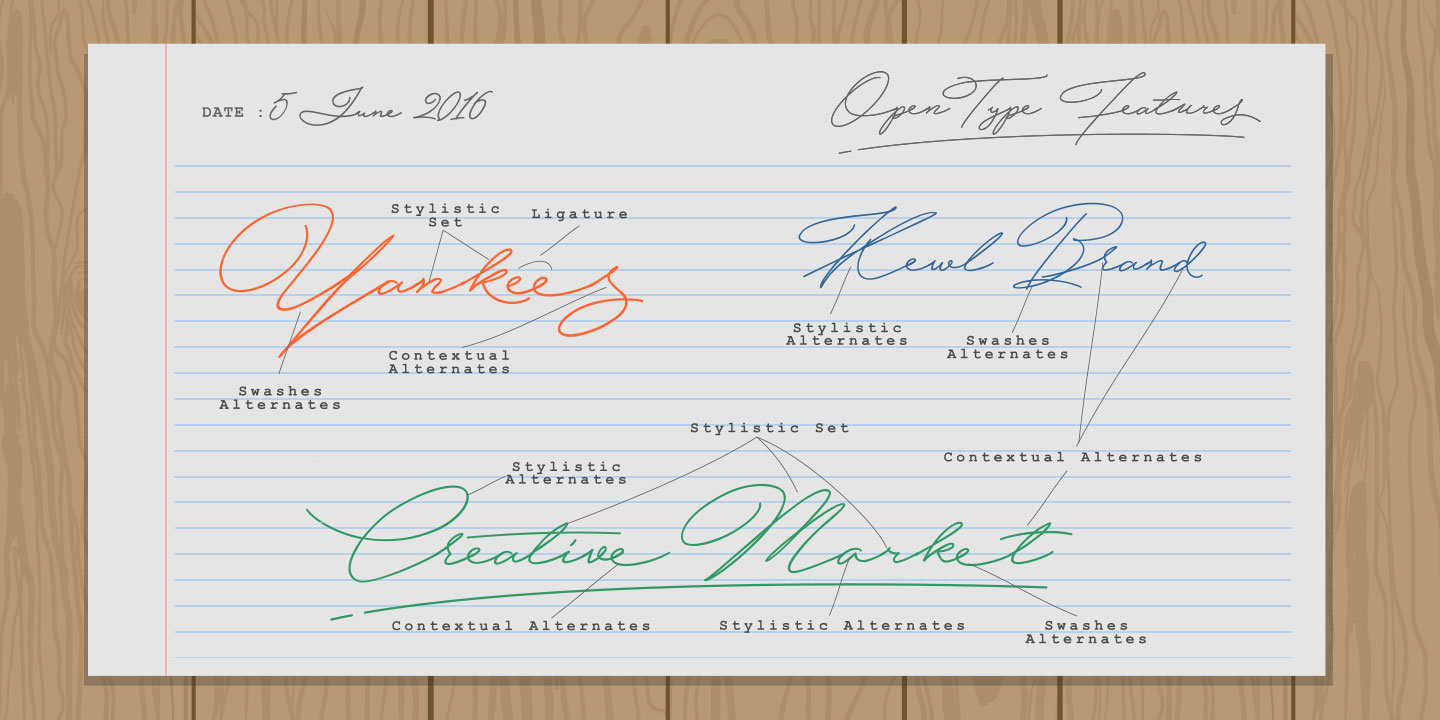 DATE : 5 June 2016
OpenType Features
Stylistic
Set
Ligature
Yankees
Contextual
Alternates
Swashes
Alternates
Kewl Brand
Stylistic
Alternates
Swashes
Alternates
Contextual Alternates
Stylistic Set
Stylistic
Alternates
Creative Market
Contextual Alternates
Stylistic Alternates
Swashes
Alternates